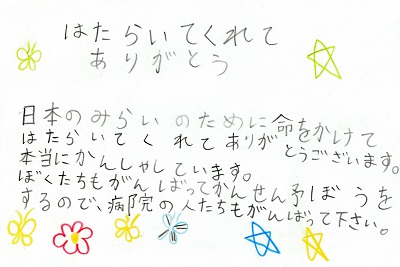 はたらいてくれて
ありがとう
日本のみらいのために命をかけて
はたらいてくれてありがとうございます。
本当にかんしゃしています。
ぼくたちもがんばってかんせん予ぼうを
するので、病院の人たちもがんばって下さい。